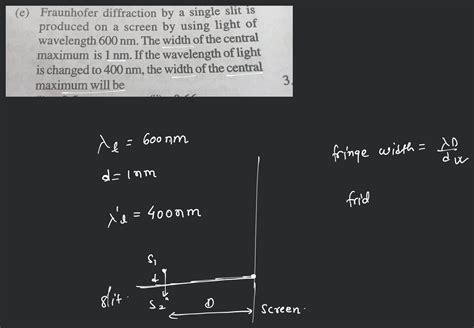 (e) Fraunhofer diffraction by a single slit is
produced on a screen by using light of
wavelength 600 nm. The width of the central
maximum is 1 nm. If the wavelength of light
is changed to 400 nm, the width of the central
maximum will be
3.
λℓ = 600nm
d = 1nm
λ'ℓ = 400nm
fringe width = λD/d
frid
S₁
d
S₂
slit.
D
Screen.